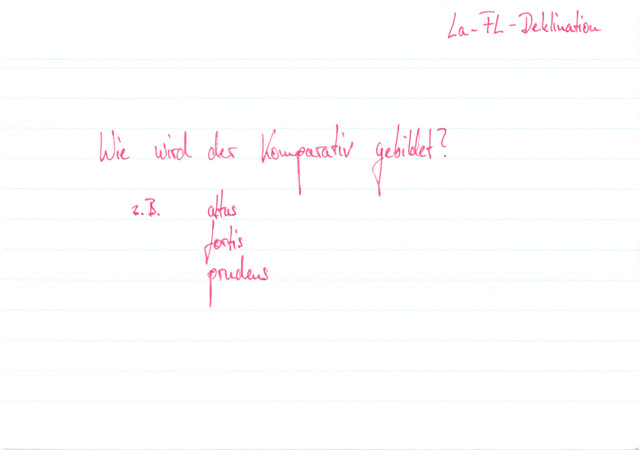 La-FL-Deklination
Wie wird der Komparativ gebildet?
z.B. altus
fortis
prudens